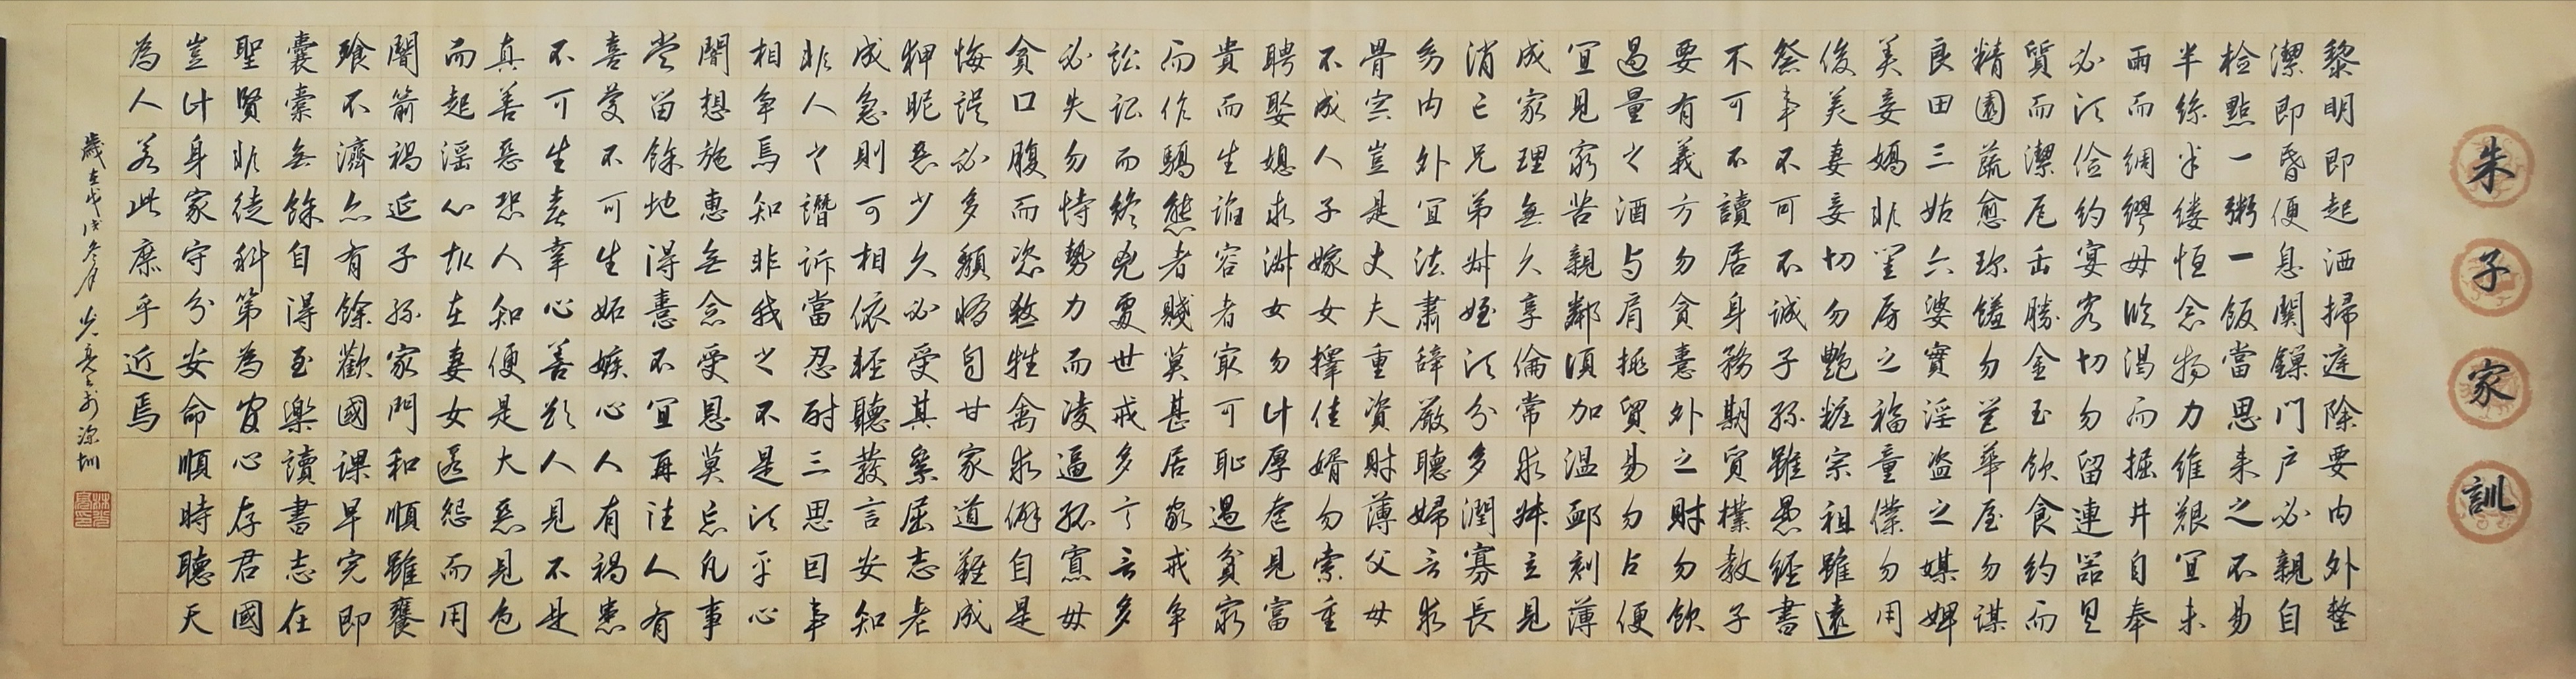 朱子家訓
黎明即起洒掃庭除要内外整
潔即昏便息関鏁門户必親自
檢點一粥一飯當思来之不易
半絲半縷恒念物力維艱宜未
雨而綢繆毋臨渴而掘井自奉
必須儉約宴客切勿留連器具
質而潔瓦缶勝金玉飲食約而
精園蔬愈珍饈勿營華屋勿謀
良田三姑六婆實淫盗之媒婢
美妾嬌非閨房之福童僕勿用
俊美妻妾切勿艶粧宗祖雖遠
祭事不可不誠子孫雖愚經書
不可不讀居身務期質樸教子
要有義方勿貪意外之財勿飲
過量之酒与肩挑貿易勿占便
宜見窮苦親鄰須加温卹刻薄
成家理無久享倫常乖舛立見
消亡兄弟叔姪須分多潤寡長
幼内外宜法肅辭嚴聽婦言乖
骨宗豈是丈夫重資財薄父母
不成人子嫁女擇佳婿勿索重
聘娶媳求淑女勿計厚奩見富
貴而生諂容者最可恥遇貧窮
而作驕態者賤莫甚居家戒争
訟訟而終凶處世戒多言言多
必失勿恃勢力而凌逼孤寡毋
貪口腹而恣殺牲禽乖僻自是
悔誤必多頹惰自甘家道難成
狎昵惡少久必受其累屈志老
成急則可相依輕聽發言安知
非人之譖訴當忍耐三思因事
相争焉知非我之不是須平心
闇想施惠無念受恩莫忘凡事
當留餘地得意不宜再往人有
喜慶不可生妬嫉心人有禍患
不可生喜幸心善欲人見不是
真善惡恐人知便是大惡見色
而起淫心報在妻女匿怨而用
闇箭禍延子孫家門和順雖饔
飱不濟亦有餘歡國課早完即
囊橐無餘自得至樂讀書志在
聖賢非徒科第為官心存君國
豈計身家守分安命順時聽天
為人若此庶乎近焉
歲在戊戌冬月光亮书於深圳